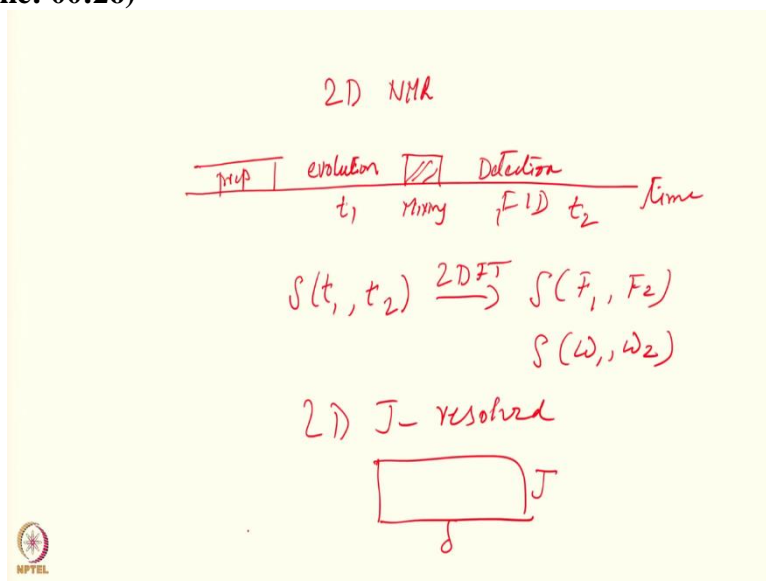 ne: 00:26)
2D NMR
prep evolution Detection
t₁ Mixing FID t₂ time
S(t₁, t₂) 2DFT → S(F₁, F₂)
S(ω₁, ω₂)
2D J-resolved
J
δ
NPTEL